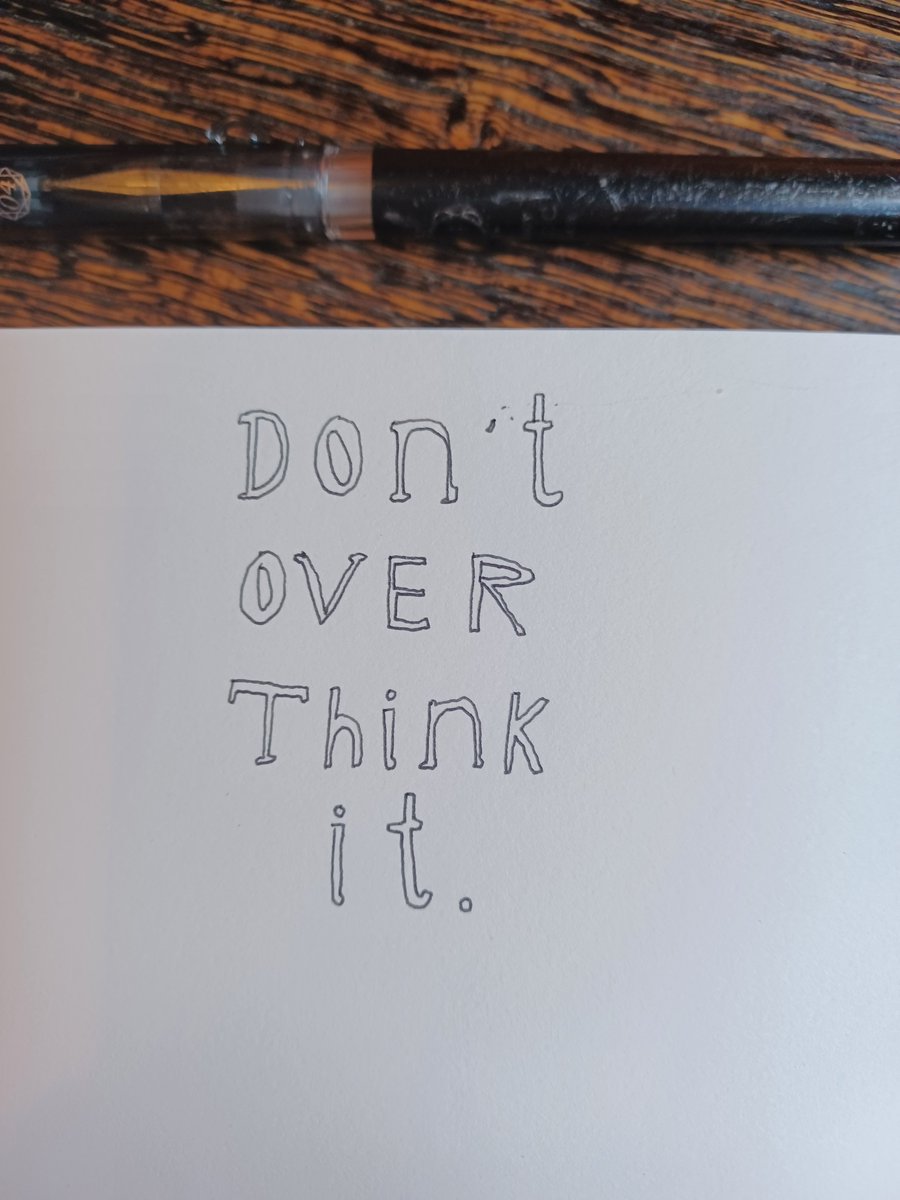 Don't
OVER
Think
it.